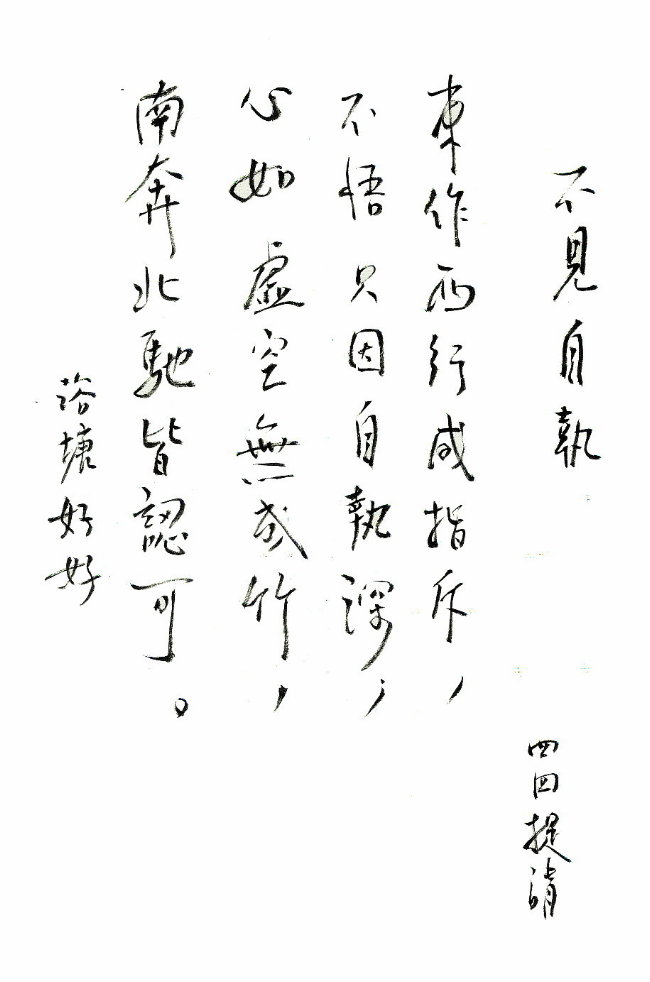 不見自執
四四提請
東作西行咸指斥，
不悟只因自執深，
心如虛空無或竹，
南奔北馳皆認可。
塘好好